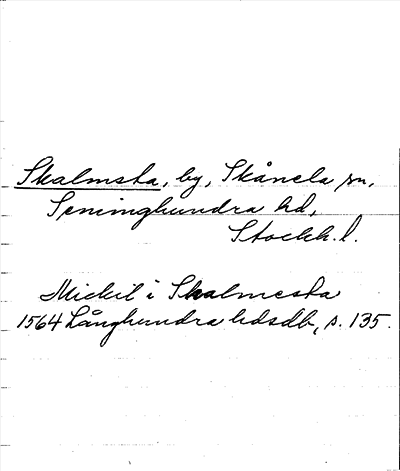 Skalmsta, by, Skånela sn,
Seminghundra hd,
Stockh. l.
Mickil i Skalmesta
1564 Långhundra hdsdb, s. 135.